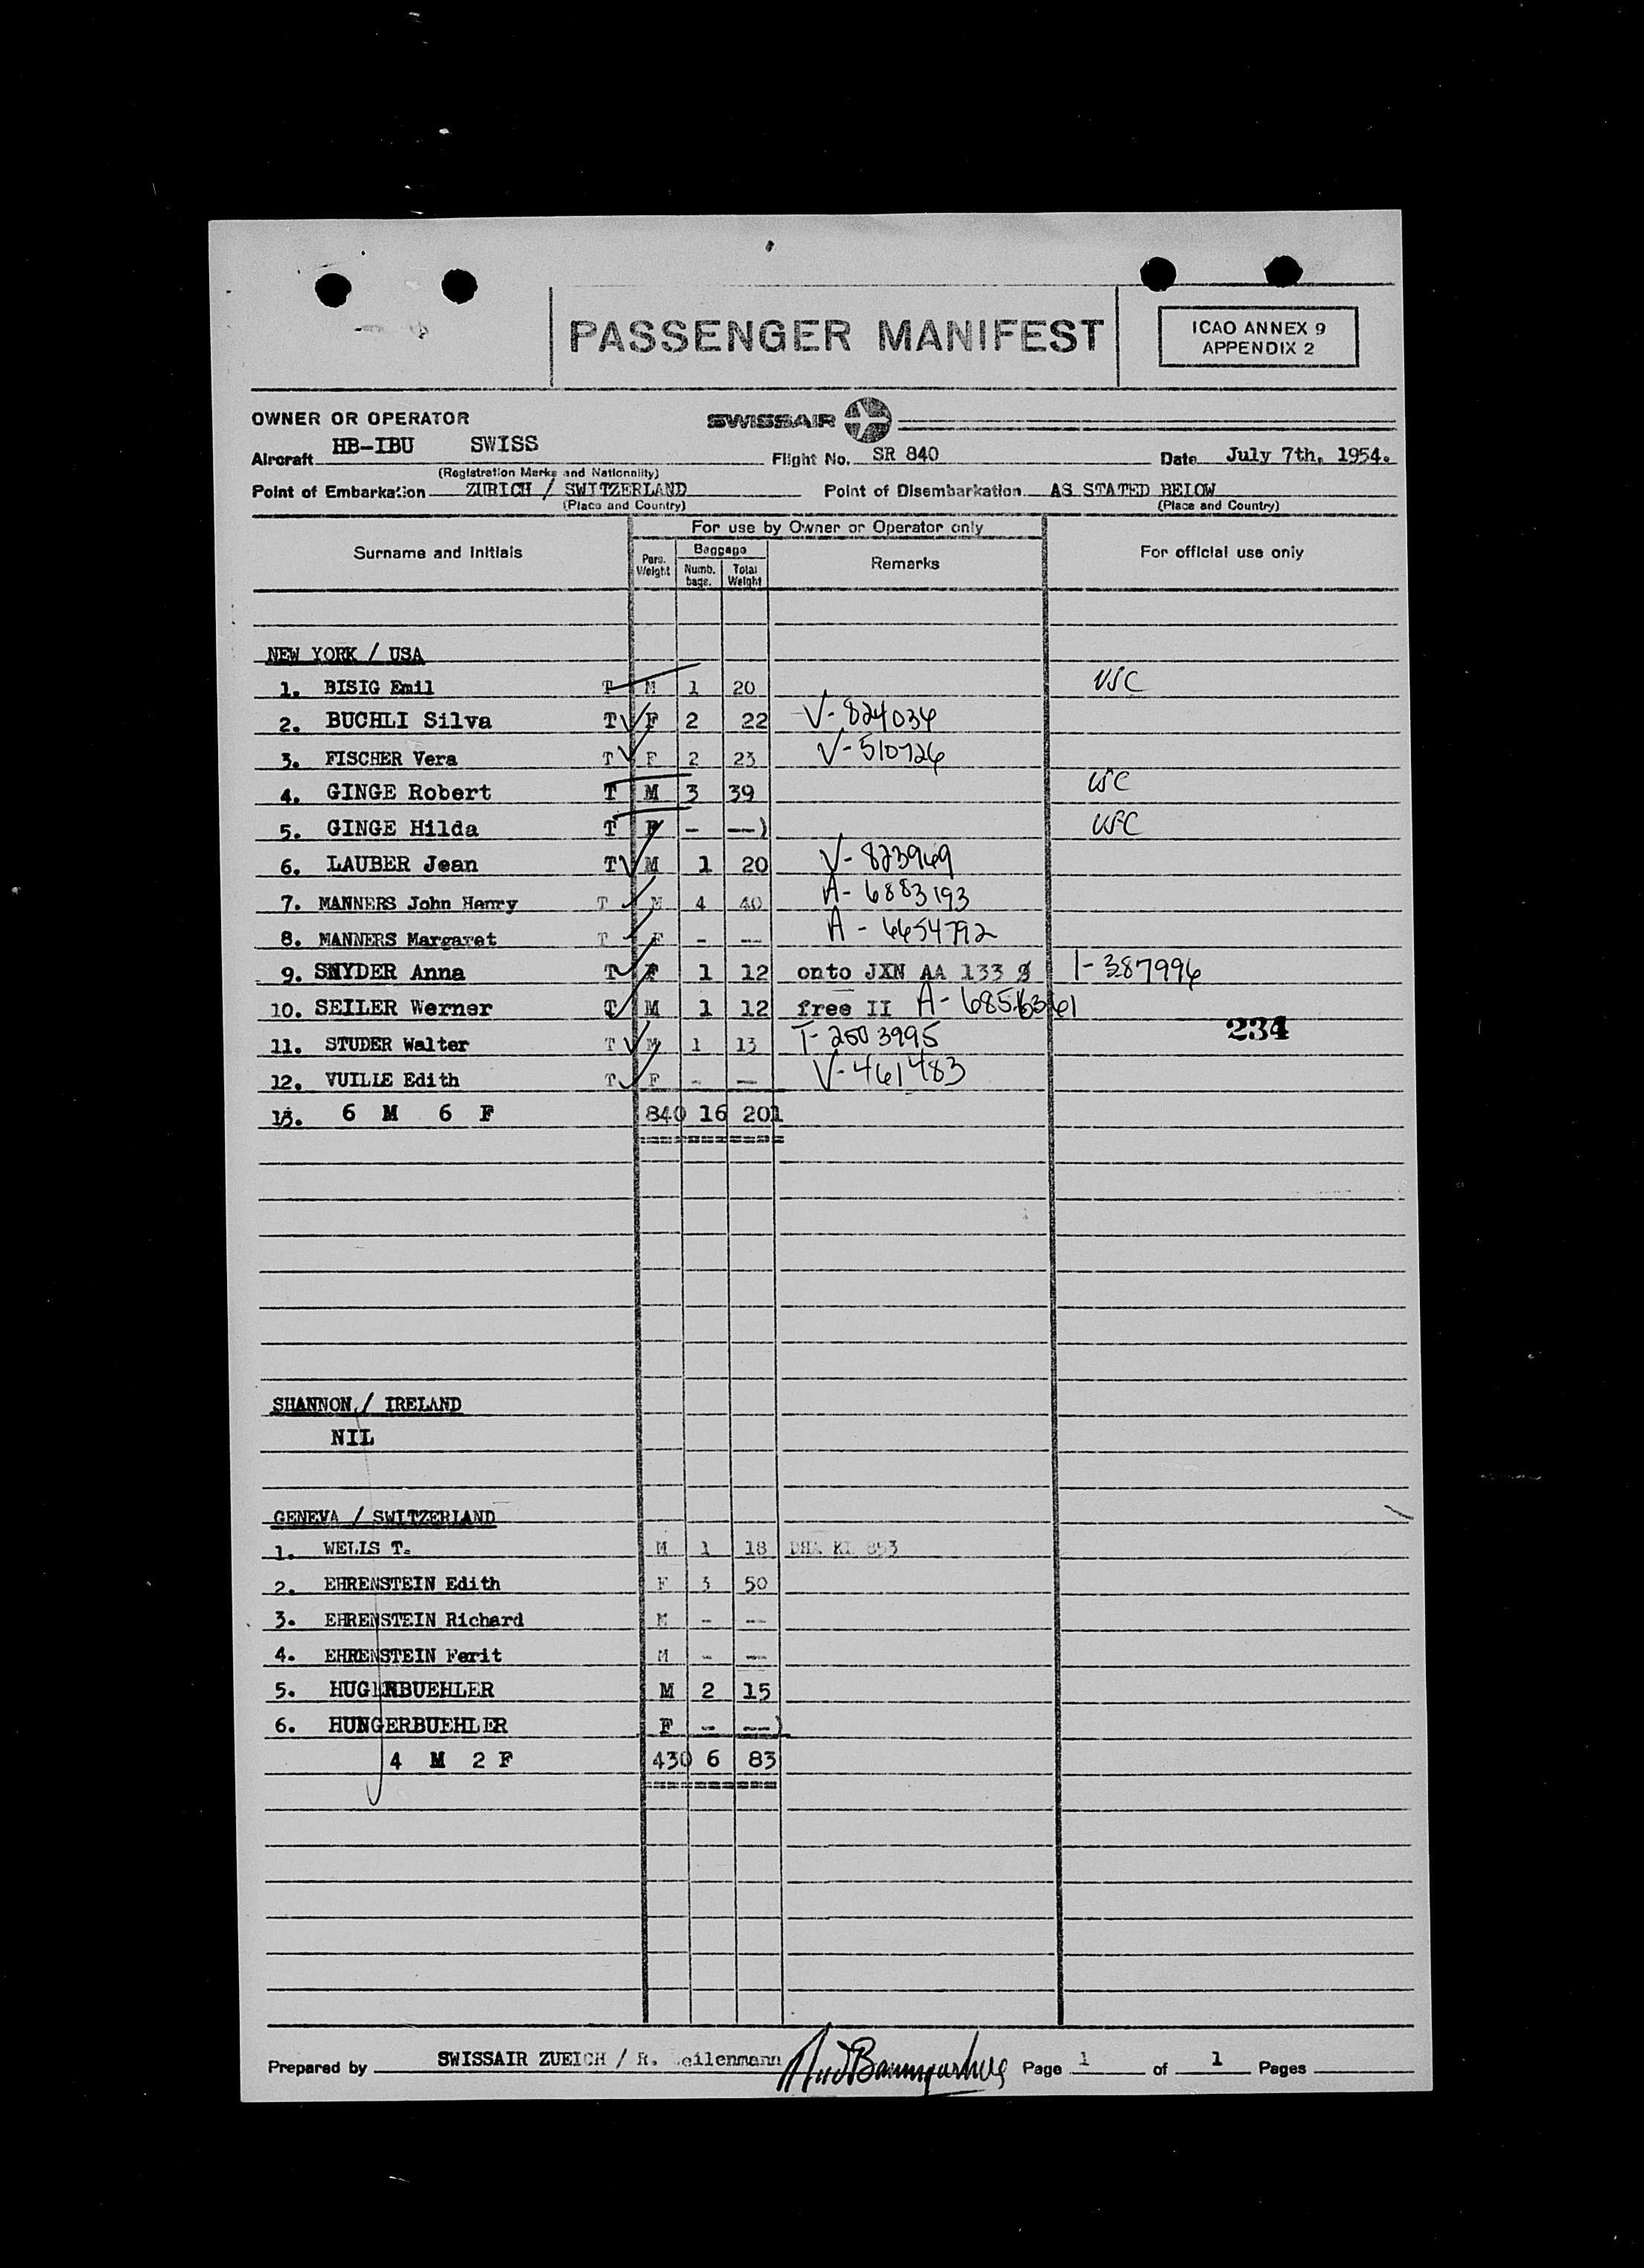 PASSENGER MANIFEST
ICAO ANNEX 9
APPENDIX 2
OWNER OR OPERATOR
SWISSAIR
Aircraft HB-IBU SWISS Flight No. SR 840 Date July 7th, 1954.
(Registration Marks and Nationality)
Point of Embarkation ZURICH / SWITZERLAND Point of Disembarkation AS STATED BELOW
(Place and Country) (Place and Country)
For use by Owner or Operator only
Surname and Initials Pers. Weight Baggage Numb. bags. Total Weight Remarks For official use only
NEW YORK / USA
1. BISIG Emil T M 1 20 USC
2. BUCHLI Silva T F 2 22 V-824034
3. FISCHER Vera T F 2 23 V-510726
4. GINGE Robert T M 3 39 USC
5. GINGE Hilda T F - --) USC
6. LAUBER Jean T M 1 20 V-823969
7. MANNERS John Henry T M 4 40 A-6883193
8. MANNERS Margaret T F - -- A-6654792
9. SNYDER Anna T F 1 12 onto JXN AA 133 I-387996
10. SEILER Werner T M 1 12 free II
234
11. STUDER Walter T M 1 13 T-2503995
12. VUILLE Edith T F - -- V-461483
13. 6 M 6 F 840 16 201
SHANNON / IRELAND
NIL
GENEVA / SWITZERLAND
1. WELLS T. M 1 18 DHA KL 853
2. EHRENSTEIN Edith F 3 50
3. EHRENSTEIN Richard M - --
4. EHRENSTEIN Ferit M - --
5. HUGERBUEHLER M 2 15
6. HUNGERBUEHLER F - --)
4 M 2 F 430 6 83
Prepared by SWISSAIR ZUEICH / R. eilenmann Page 1 of 1 Pages